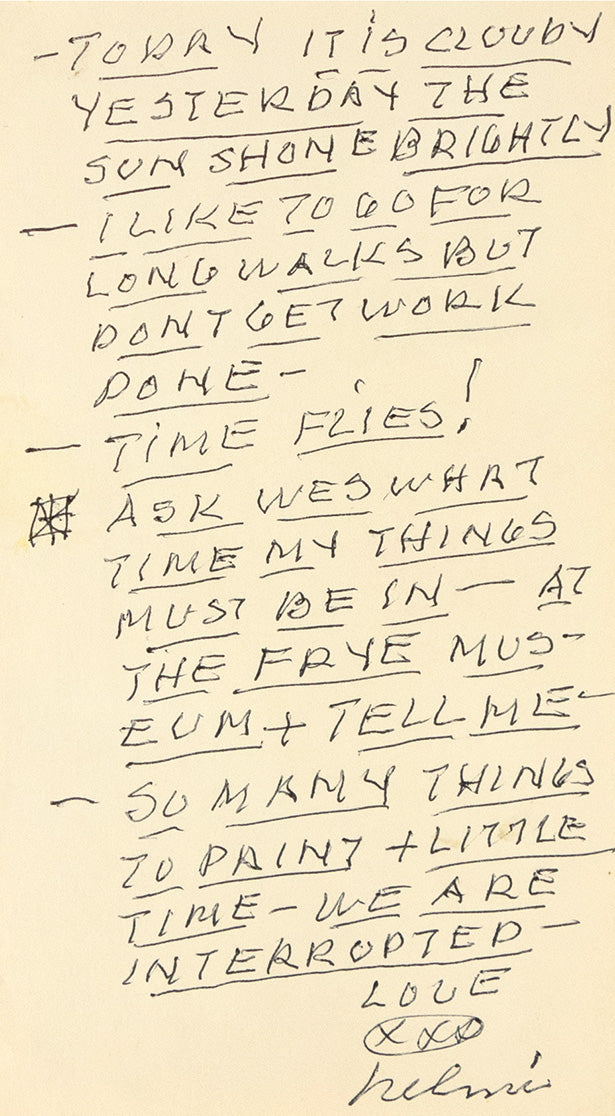 - TODAY IT IS CLOUDY
YESTERDAY THE
SUN SHONE BRIGHTLY
- I LIKE TO GO FOR
LONG WALKS BUT
DONT GET WORK
DONE -
- TIME FLIES!
ASK WES WHAT
TIME MY THINGS
MUST BE IN - AT
THE FRYE MUS-
EUM + TELL ME -
- SO MANY THINGS
TO PAINT + LITTLE
TIME - WE ARE
INTERRUPTED -
LOVE
XXX
helmi